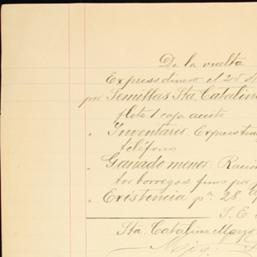 De la vuelta
Express dinero el 28
por Semillas Sta. Catalina
flete 1 caja aceite
" Inventario Express
teléfono
" Ganado menor.
los borregos finos por
" Existencia pa. 28
S. E.
Sta. Catalina Marzo